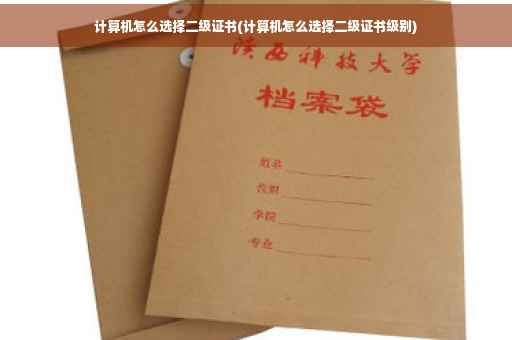 计算机怎么选择二级证书(计算机怎么选择二级证书级别)
陕西科技大学
档案袋
学院
专业